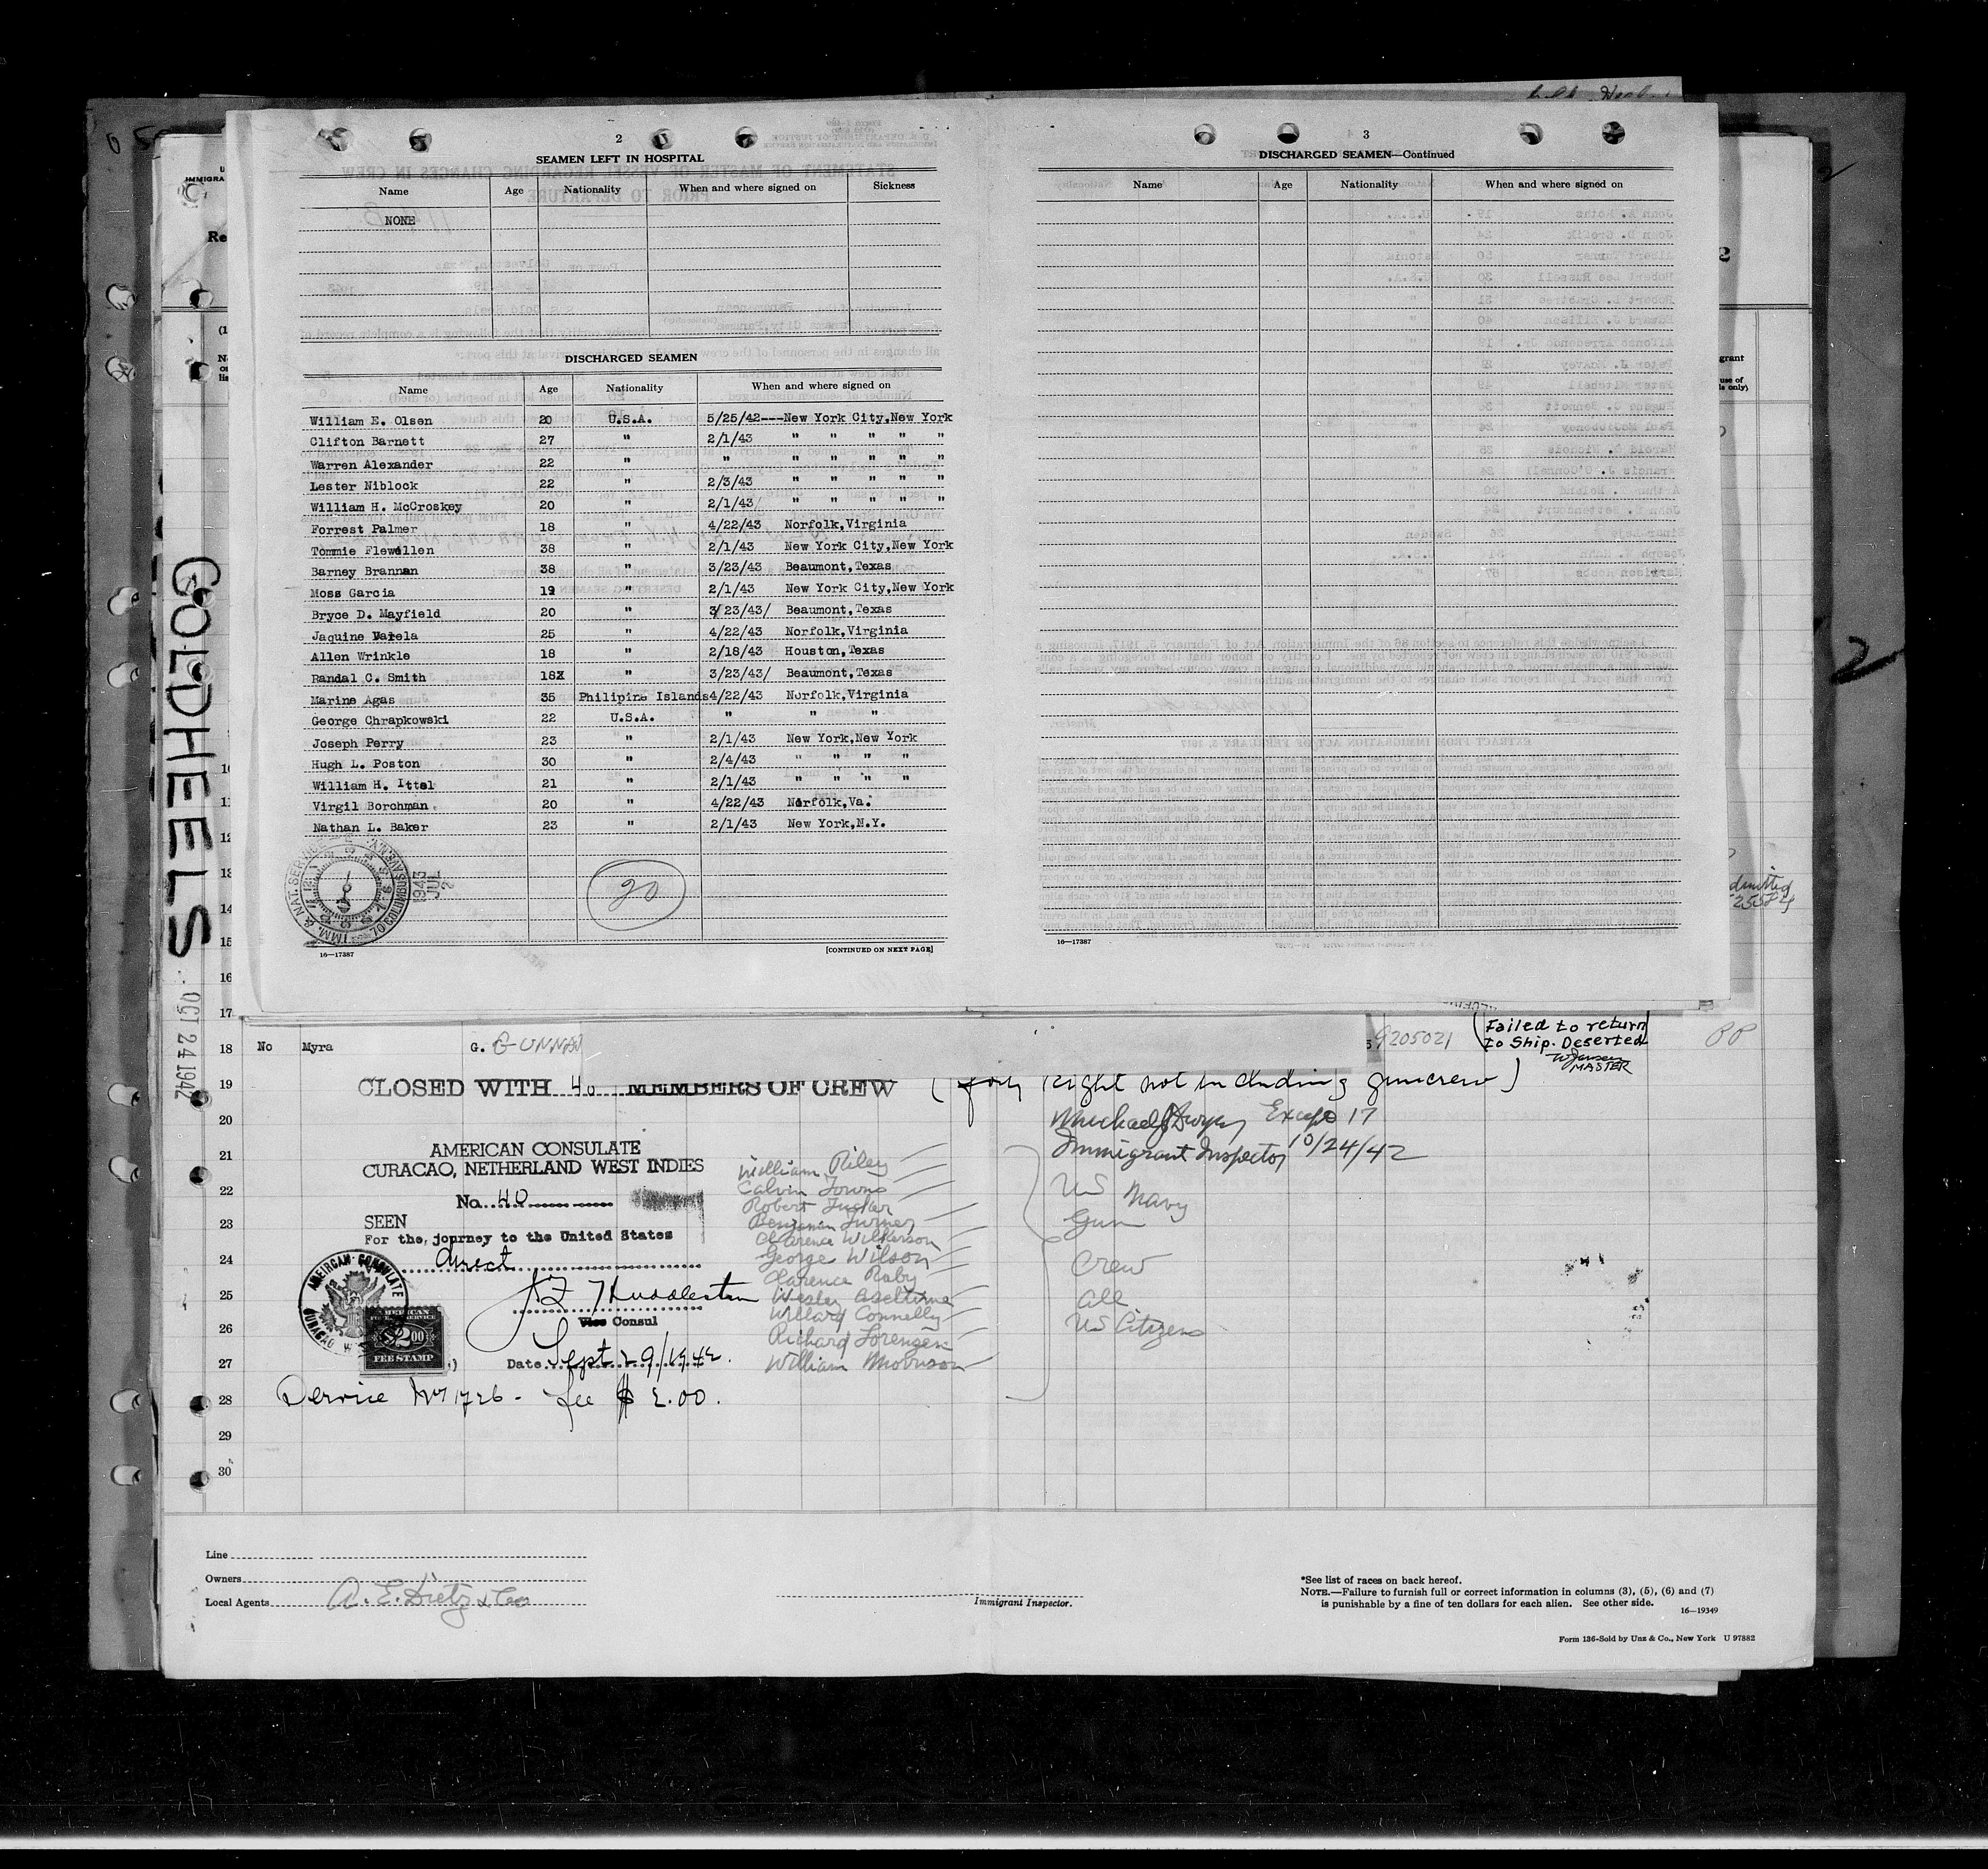 2
SEAMEN LEFT IN HOSPITAL
Name Age Nationality When and where signed on Sickness
NONE
DISCHARGED SEAMEN
Name Age Nationality When and where signed on
William E. Olsen 20 U.S.A. 5/25/42---New York City,New York
Clifton Barnett 27 " 2/1/43 " " " " "
Warren Alexander 22 " " " " " " "
Lester Niblock 22 " 2/3/43 " " " " "
William H. McCroskey 20 " 2/1/43/ " " " " "
Forrest Palmer 18 " 4/22/43 Norfolk,Virginia
Tommie Flewellen 38 " 2/1/43 New York City,New York
Barney Brannan 38 " 3/23/43 Beaumont,Texas
Moss Garcia 19 " 2/1/43 New York City,New York
Bryce D. Mayfield 20 " 3/23/43/ Beaumont,Texas
Jaquine Varela 25 " 4/22/43 Norfolk,Virginia
Allen Wrinkle 18 " 2/18/43 Houston,Texas
Randal C. Smith 18X " 3/23/43/ Beaumont,Texas
Marine Agas 35 Philipine Islands 4/22/43 Norfolk,Virginia
George Chrapkowski 22 U.S.A. " " "
Joseph Perry 23 " 2/1/43 New York,New York
Hugh L. Poston 30 " 2/4/43 " " " "
William H. Ittel 21 " 2/1/43 " " " "
Virgil Borchman 20 " 4/22/43 Norfolk,Va.
Nathan L. Baker 23 " 2/1/43 New York,N.Y.
20
IMM. & NAT. SERVICE
COLUMBUS AVE N.Y.
1943 JUL 2
16—17387
[CONTINUED ON NEXT PAGE]
3
DISCHARGED SEAMEN—Continued
Name Age Nationality When and where signed on
16—17387
GOLDHEELS
OCT 24 1942
2
10
11
12
13
14
15
16
17
18 No Myra G. GUNNAR 9205021 (Failed to return
to Ship. Deserted
MASTER
19 CLOSED WITH 40 MEMBERS OF CREW (forty Eight not including guncrew)
20
Except 17
Immigrant Inspector 10/24/42
21
AMERICAN CONSULATE
CURACAO, NETHERLAND WEST INDIES
22
No. 40
SEEN
23
For the journey to the United States
24
direct
25
Huddleston
Vice Consul
26
27
Date Sept 29/1942.
28
Service No 1726 - fee $ 2.00.
29
30
AMERICAN CONSULATE
CURACAO W
AMERICAN
FOREIGN SERVICE
$2.00
FEE STAMP
William Riley
Calvin Towns
Robert Tucker
Benjamin Turner
Clarence Wilkerson
George Wilson
Clarence Raby
Wesley
Willard Connelly
Richard Lorensen
William Morrison
US Navy
Gun
Crew
all
US Citizens
Line
Owners
Local Agents A. E. Dietz & Co
Immigrant Inspector.
*See list of races on back hereof.
NOTE.—Failure to furnish full or correct information in columns (3), (5), (6) and (7)
is punishable by a fine of ten dollars for each alien. See other side.
16—19349
Form 136-Sold by Unz & Co., New York U 97882